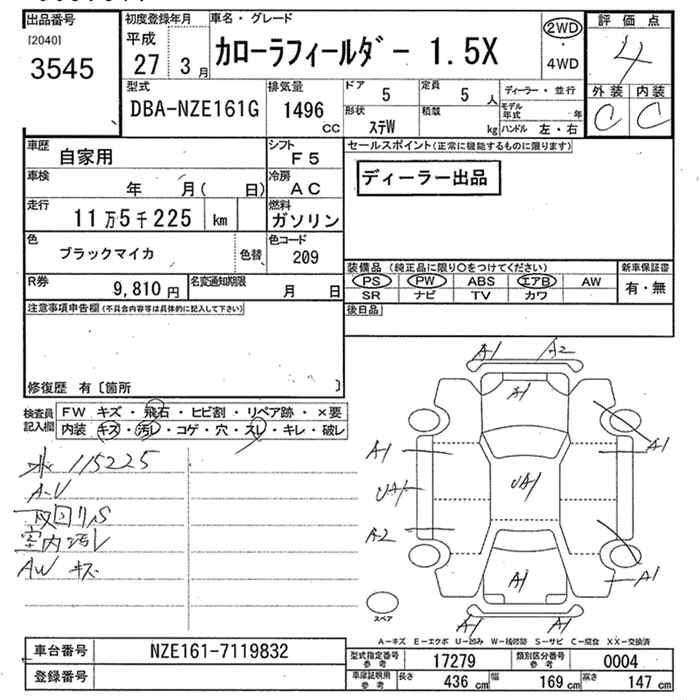 出品番号
[2040]
3545
初度登録年月
平成
27 3 月
車名・グレード
カローラフィールダー 1.5X
2WD
・
4WD
評価点
4
外装 内装
C C
型式
DBA-NZE161G
排気量
1496
CC
ドア
5
定員
5 人
形状
ステW
積載
kg
ディーラー・並行
モデル
年式 年
ハンドル 左・右
車歴
自家用
シフト
F5
車検
年 月( 日)
冷房
AC
走行
11 万 5 千 225 km
燃料
ガソリン
色
ブラックマイカ
色替
色コード
209
R券
9,810 円
名変通知期限
月 日
セールスポイント(正常に機能するものに限ります)
ディーラー出品
装備品 (純正品に限り〇をつけてください)
PS PW ABS エアB AW
SR ナビ TV カワ
新車保証書
有・無
後日品
注意事項申告欄(不具合内容等は具体的に記入して下さい)
修復歴 有〔箇所 〕
検査員
記入欄
FW キズ・飛石・ヒビ割・リペア跡・×要
内装 キズ・汚レ・コゲ・穴・スレ・キレ・破レ
115225
A-V
下回リS
室内汚レ
AW キズ
A1 A2
A1
A1 A1
UA1 UA1
A2
A1 A1
A1 A1
スペア
A-キズ E-エクボ U-凹み W-補修跡 S-サビ C-腐食 XX-交換済
車台番号
NZE161-7119832
登録番号
型式指定番号
参考
17279
類別区分番号
参考
0004
車庫証明用
参考
長さ
436 cm
幅
169 cm
高さ
147 cm